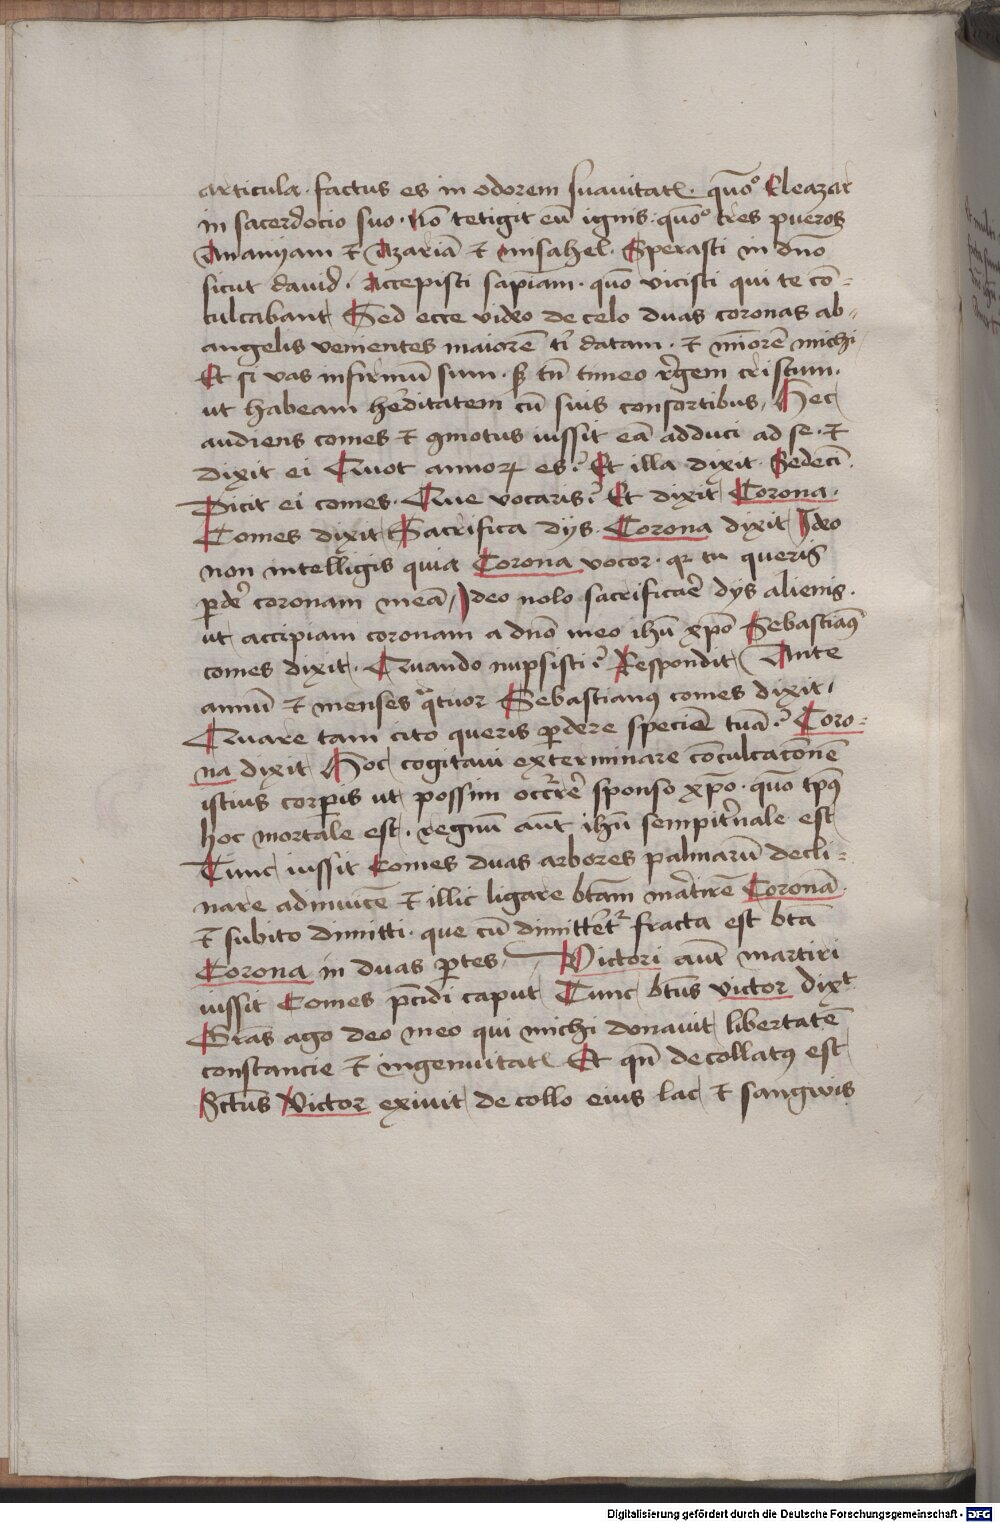 articula · factus es in odorem suauitat̄ · quō° Eleazar
in sacerdocio suo · Nō tetigit eū ignis · quō° tres pueros
Ananyam et Azariā et misahel · Sperasti in dn̄o
sicut dauid · Accepisti sapiam · quō vicisti qui te cō-
culcabant Sed ecce video de celo duas coronas ab-
angelis venientes maiorē t' datam · et mīorē michi
Et si vas infirmū sum · tn̄ timeo regem cristum ·
ut habeam hereditatem cū suis consortibus, Hec
audiens comes et 9motus iussit eā adduci ad se · et
dixit ei Quot annoꝝ es? Et illa dixit · Sedecī
Dicit ei comes · Que vocaris? Et dixit Corona ·
Comes dixit Sacrifica dijs · Corona dixit Ideo
non intelligis quia Corona vocor · qꝛ tu queris
ꝑde' coronam meā, Ideo nolo sacrificae' dijs alienis ·
ut accipiam coronam a dn̄o meo ihū xp̄o Sebastiāꝰ
comes dixit · Quando nupsisti? Respondit Ante
annū et menses qatuor Sebastianꝰ comes dixit,
Quare tam cito queris ꝑdere speciē tuā? Coro-
na dixit Hoc cogitaui exterminare cōculcacōnē
istius corꝑis ut possim occ'rē sponso xp̄o · quō tp̄ꝰ
hoc mortale est · regnū aūt ihū sempit'nale est
Tunc iussit Comes duas arbores palmarū decli-
nare adinuicē et illic ligare btām ma'tirē Coronā ·
et subito dimitti · que cū dimitte't' fracta est btā
Corona in duas ꝑtes, Victori aūt martiri
iussit Comes p̄cidi caput Tunc btūs victor dixt
Grās ago deo meo qui michi donauit libertatē
constancie et ingenuitat̄ Et qn̄ decollatꝰ est
Sctūs Victor exiuit de collo eius lac et sangwis
Digitalisierung gefördert durch die Deutsche Forschungsgemeinschaft - DFG